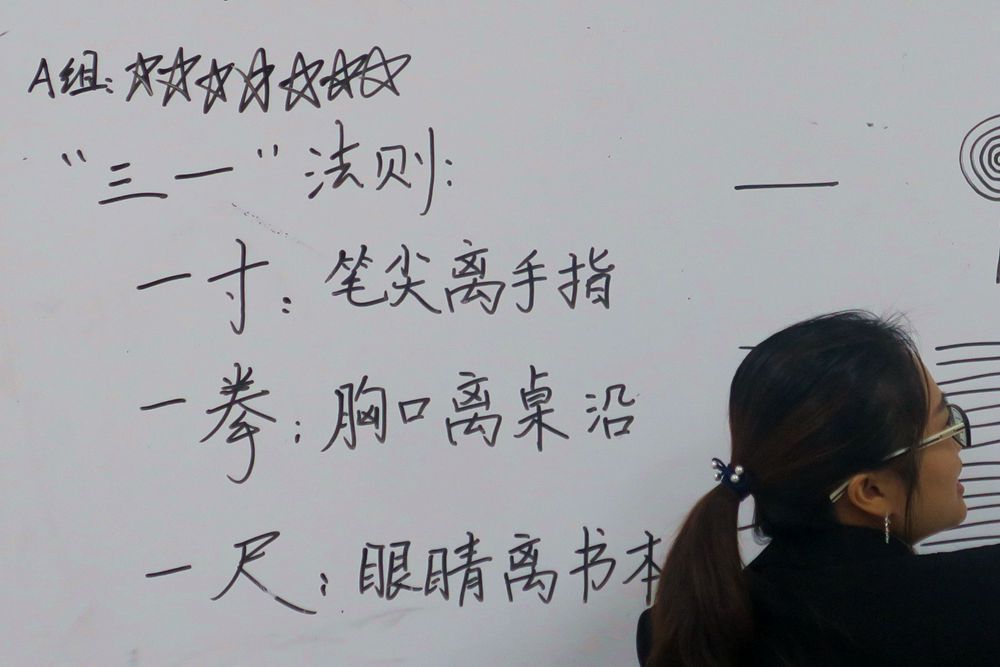 A组:☆☆☆☆☆☆☆
“三一”法则:
一寸:笔尖离手指
一拳:胸口离桌沿
一尺:眼睛离书本